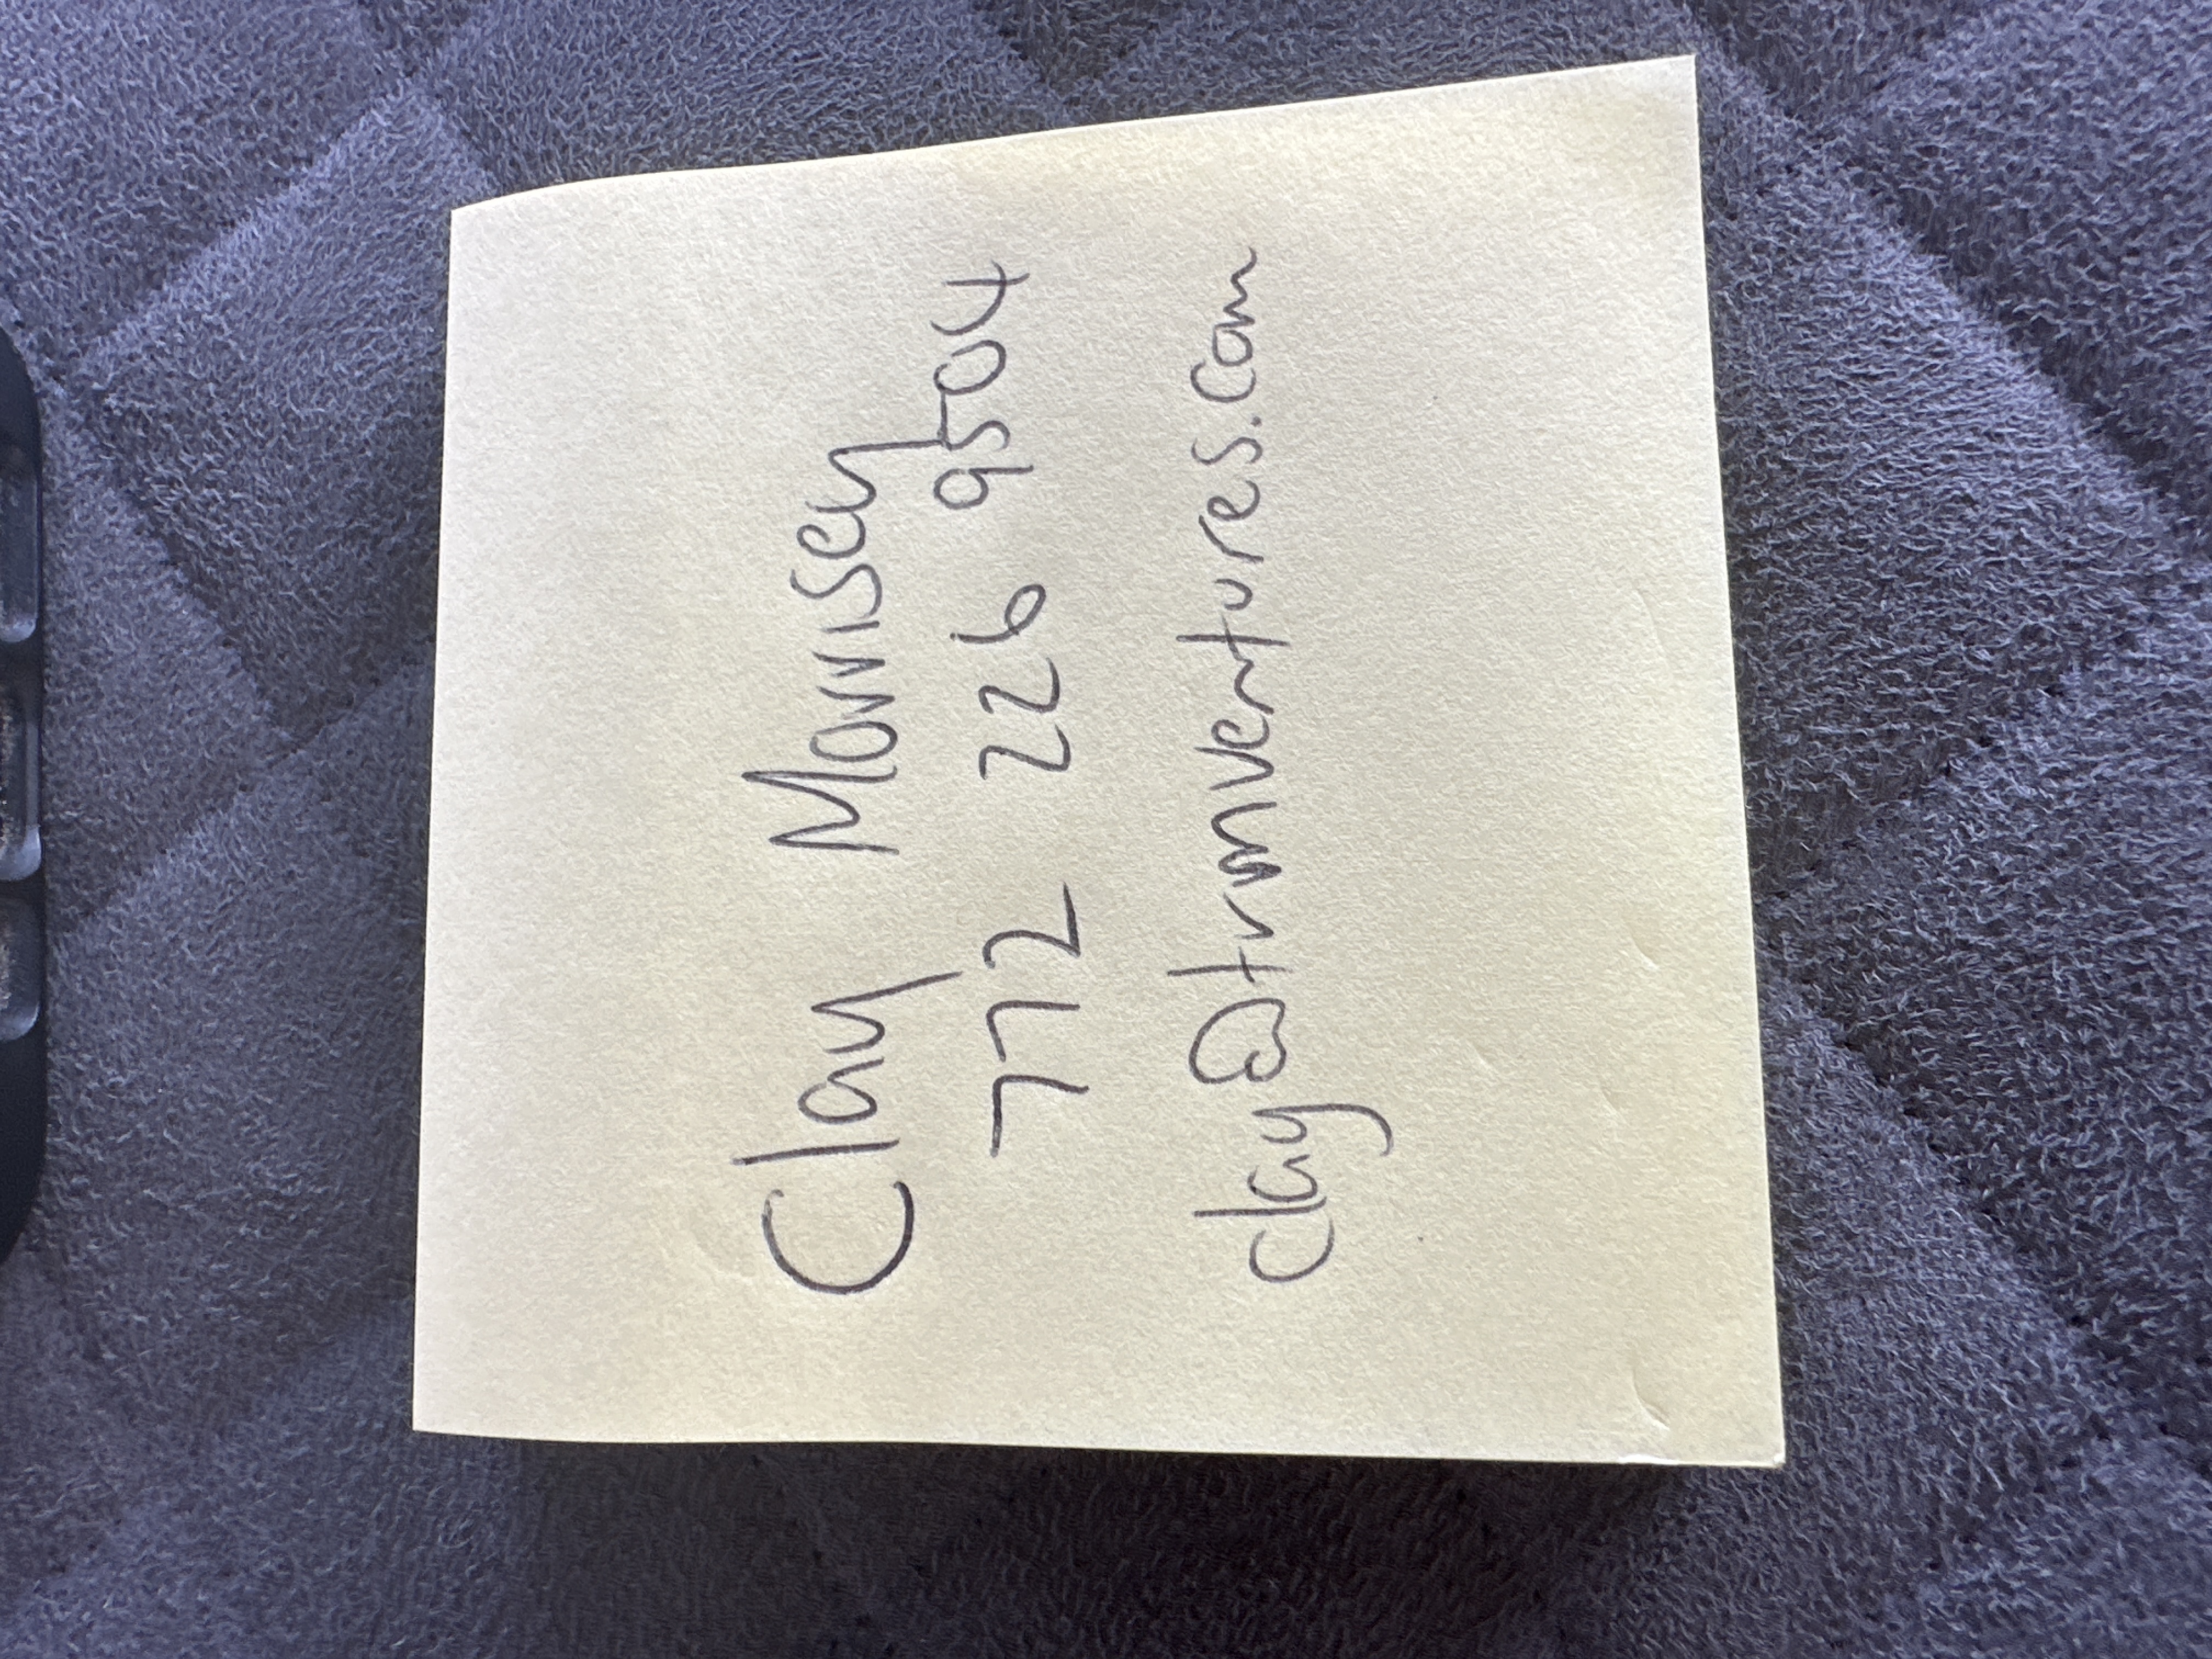 Clay Morrisey
772 226 9504
clay@trmventures.com